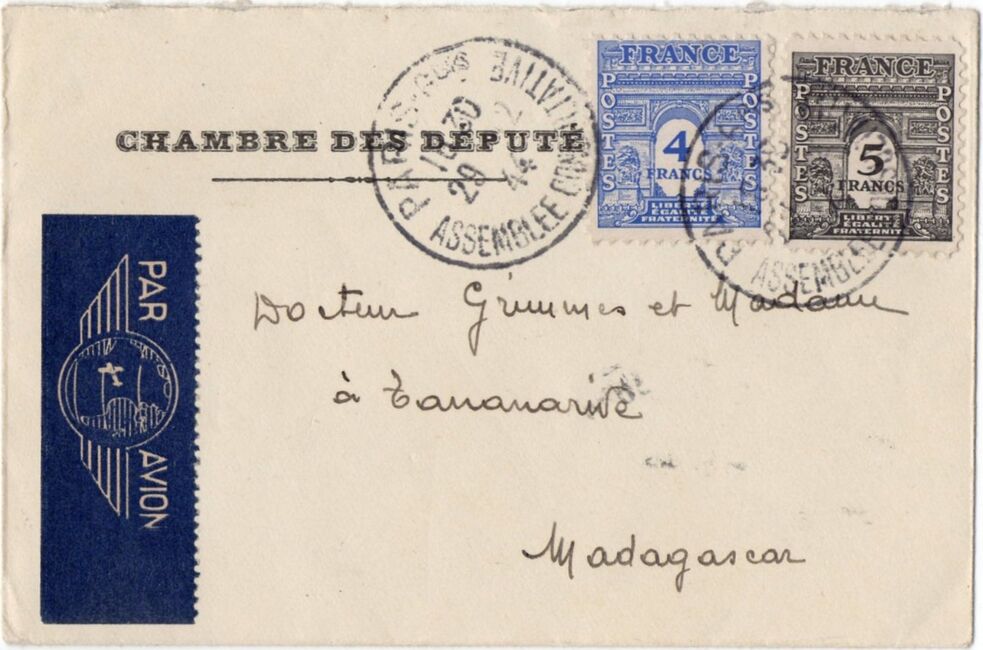 CHAMBRE DES DÉPUTÉ
FRANCE
POSTES
POSTES
4
FRANCS
LIBERTÉ
ÉGALITÉ
FRATERNITÉ
FRANCE
POSTES
POSTES
5
FRANCS
LIBERTÉ
ÉGALITÉ
FRATERNITÉ
PARIS
ASSEMBLEE CONSULTATIVE
29
44
PARIS
ASSEMBLEE
PAR AVION
Docteur Grimmes et Madame
à Tananarive
Madagascar